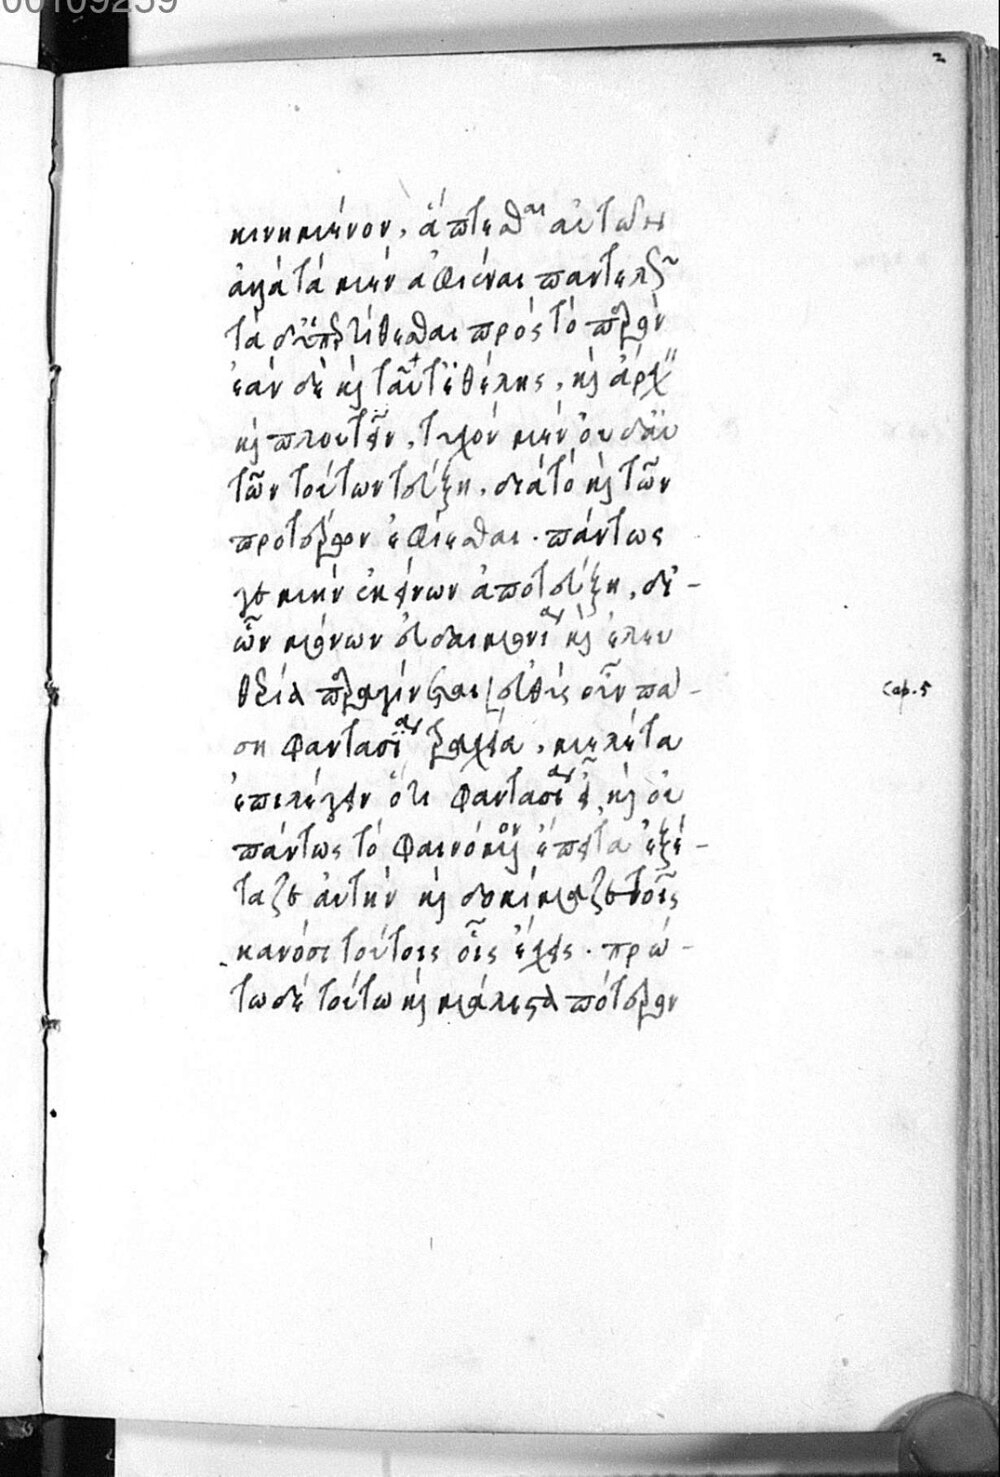 00109259
2
κινημένον, ἅπτεσθαι αὐτῶν
ἀλλὰ τὰ μὲν ἀφιέναι παντελῶς
τὰ δ' ὑπερτίθεσθαι πρὸς τὸ παρὸν
ἐὰν δὲ καὶ ταῦτ' ἐθέλης, καὶ ἄρχειν
καὶ πλουτεῖν, τυχὸν μὲν οὐδ' αὐ
τῶν τούτων τεύξη, διὰ τὸ καὶ τῶν
προτέρων ἐφίεσθαι. πάντως
γε μὴν ἐκείνων ἀποτεύξη, δι'
ὧν μόνων εὐδαιμονία καὶ ἐλευ
θερία περιγίνεται. εὐθὺς οὖν πά
ση φαντασία τραχεία, μελέτα
ἐπιλέγειν ὅτι φαντασία εἶ, καὶ οὐ
πάντως τὸ φαινόμενον ἔπειτα ἐξέ
ταζε αὐτὴν καὶ δοκίμαζε τοῖς
κανόσι τούτοις οἷς ἔχεις. πρώ
τω δὲ τούτω καὶ μάλιστα πότερον
Cap. 5